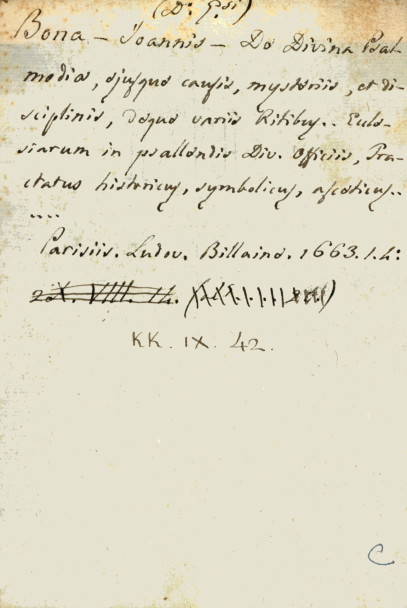 (D: G.si)
Bona — Joannis — De Divina Psal-
modia, ejusque causis, mysteriis, et di-
sciplinis, deque variis Ritibus.. Eccle-
siarum in psallendis Div. Officiis, Tra-
ctatus historicus, symbolicus, asceticus..
....
Parisiis. Ludov. Billaine. 1663. 1. 4:
KK. IX. 42.
C